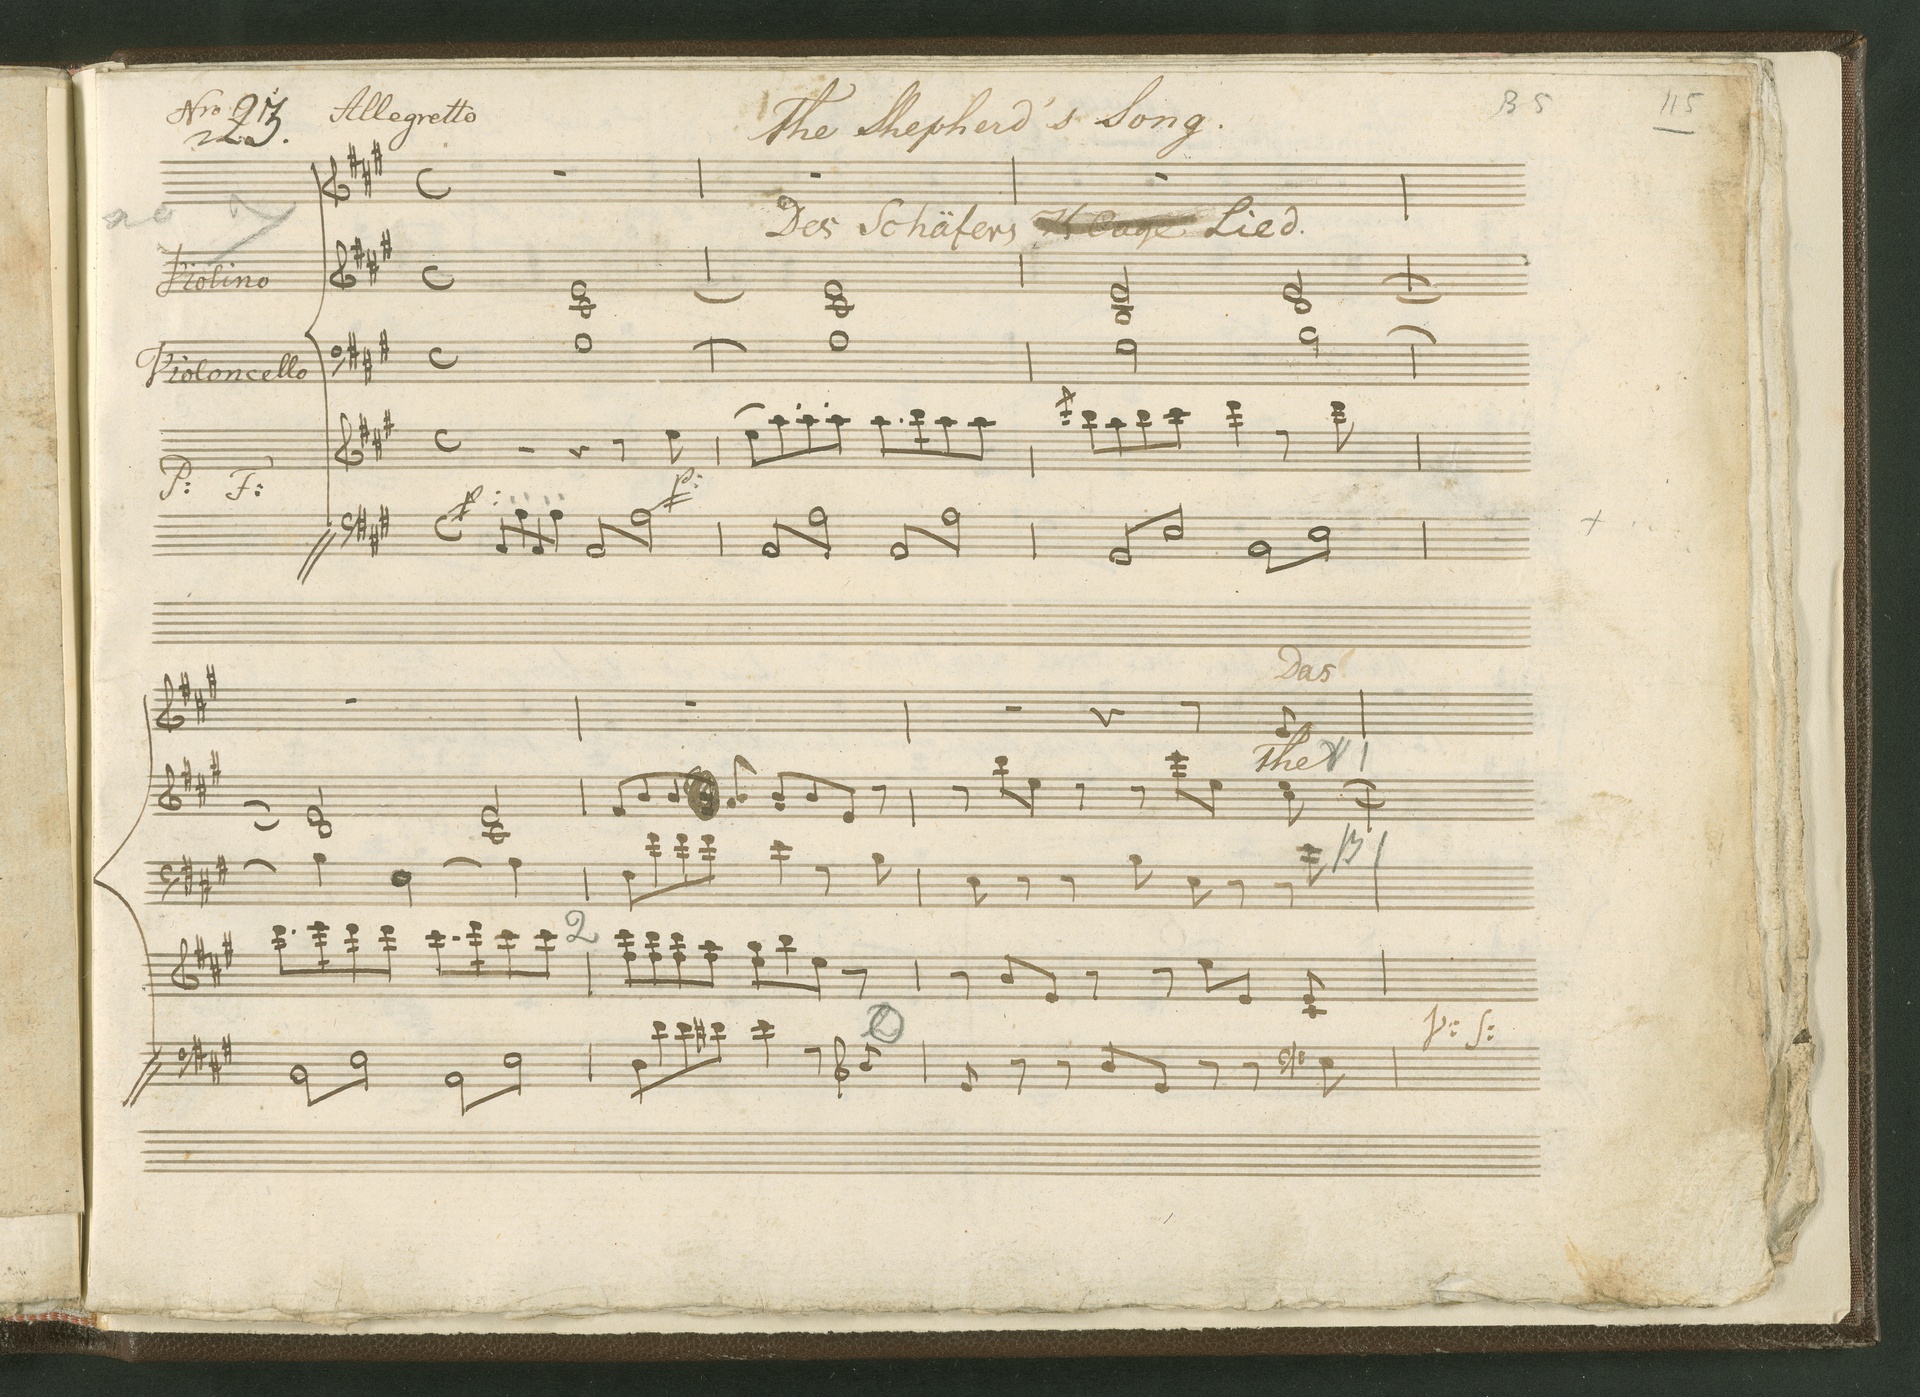 Nro 23. Allegretto The Shepherd's Song. B 5 115
Des Schäfers Lied.
Violino
Violoncello
P: F:
p: p:
Das
the V 1
B 1
2
2
p: f: